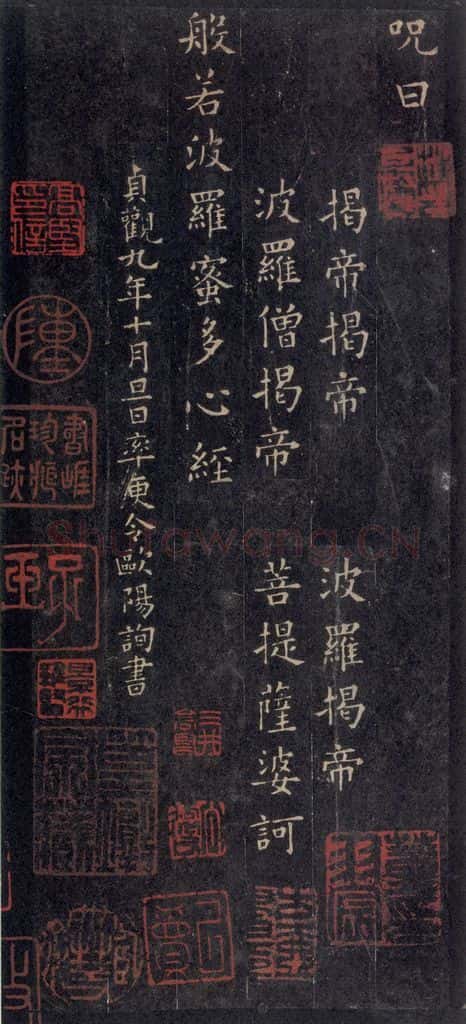 呪曰
揭帝揭帝 波羅揭帝
波羅僧揭帝 菩提薩婆訶
般若波羅蜜多心經
貞觀九年十月旦日率更令歐陽詢書
Shufawang.CN